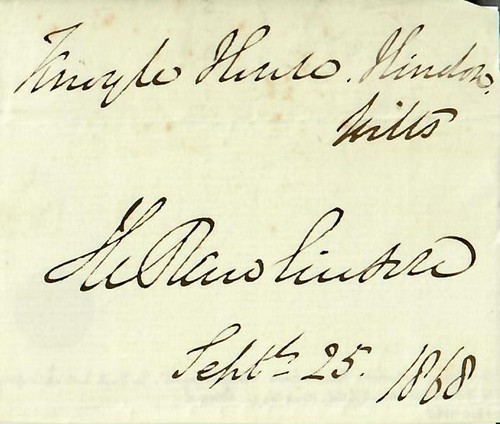 Knoyle House. Hindon,
Wilts
H C Rawlinson
Septr 25. 1868